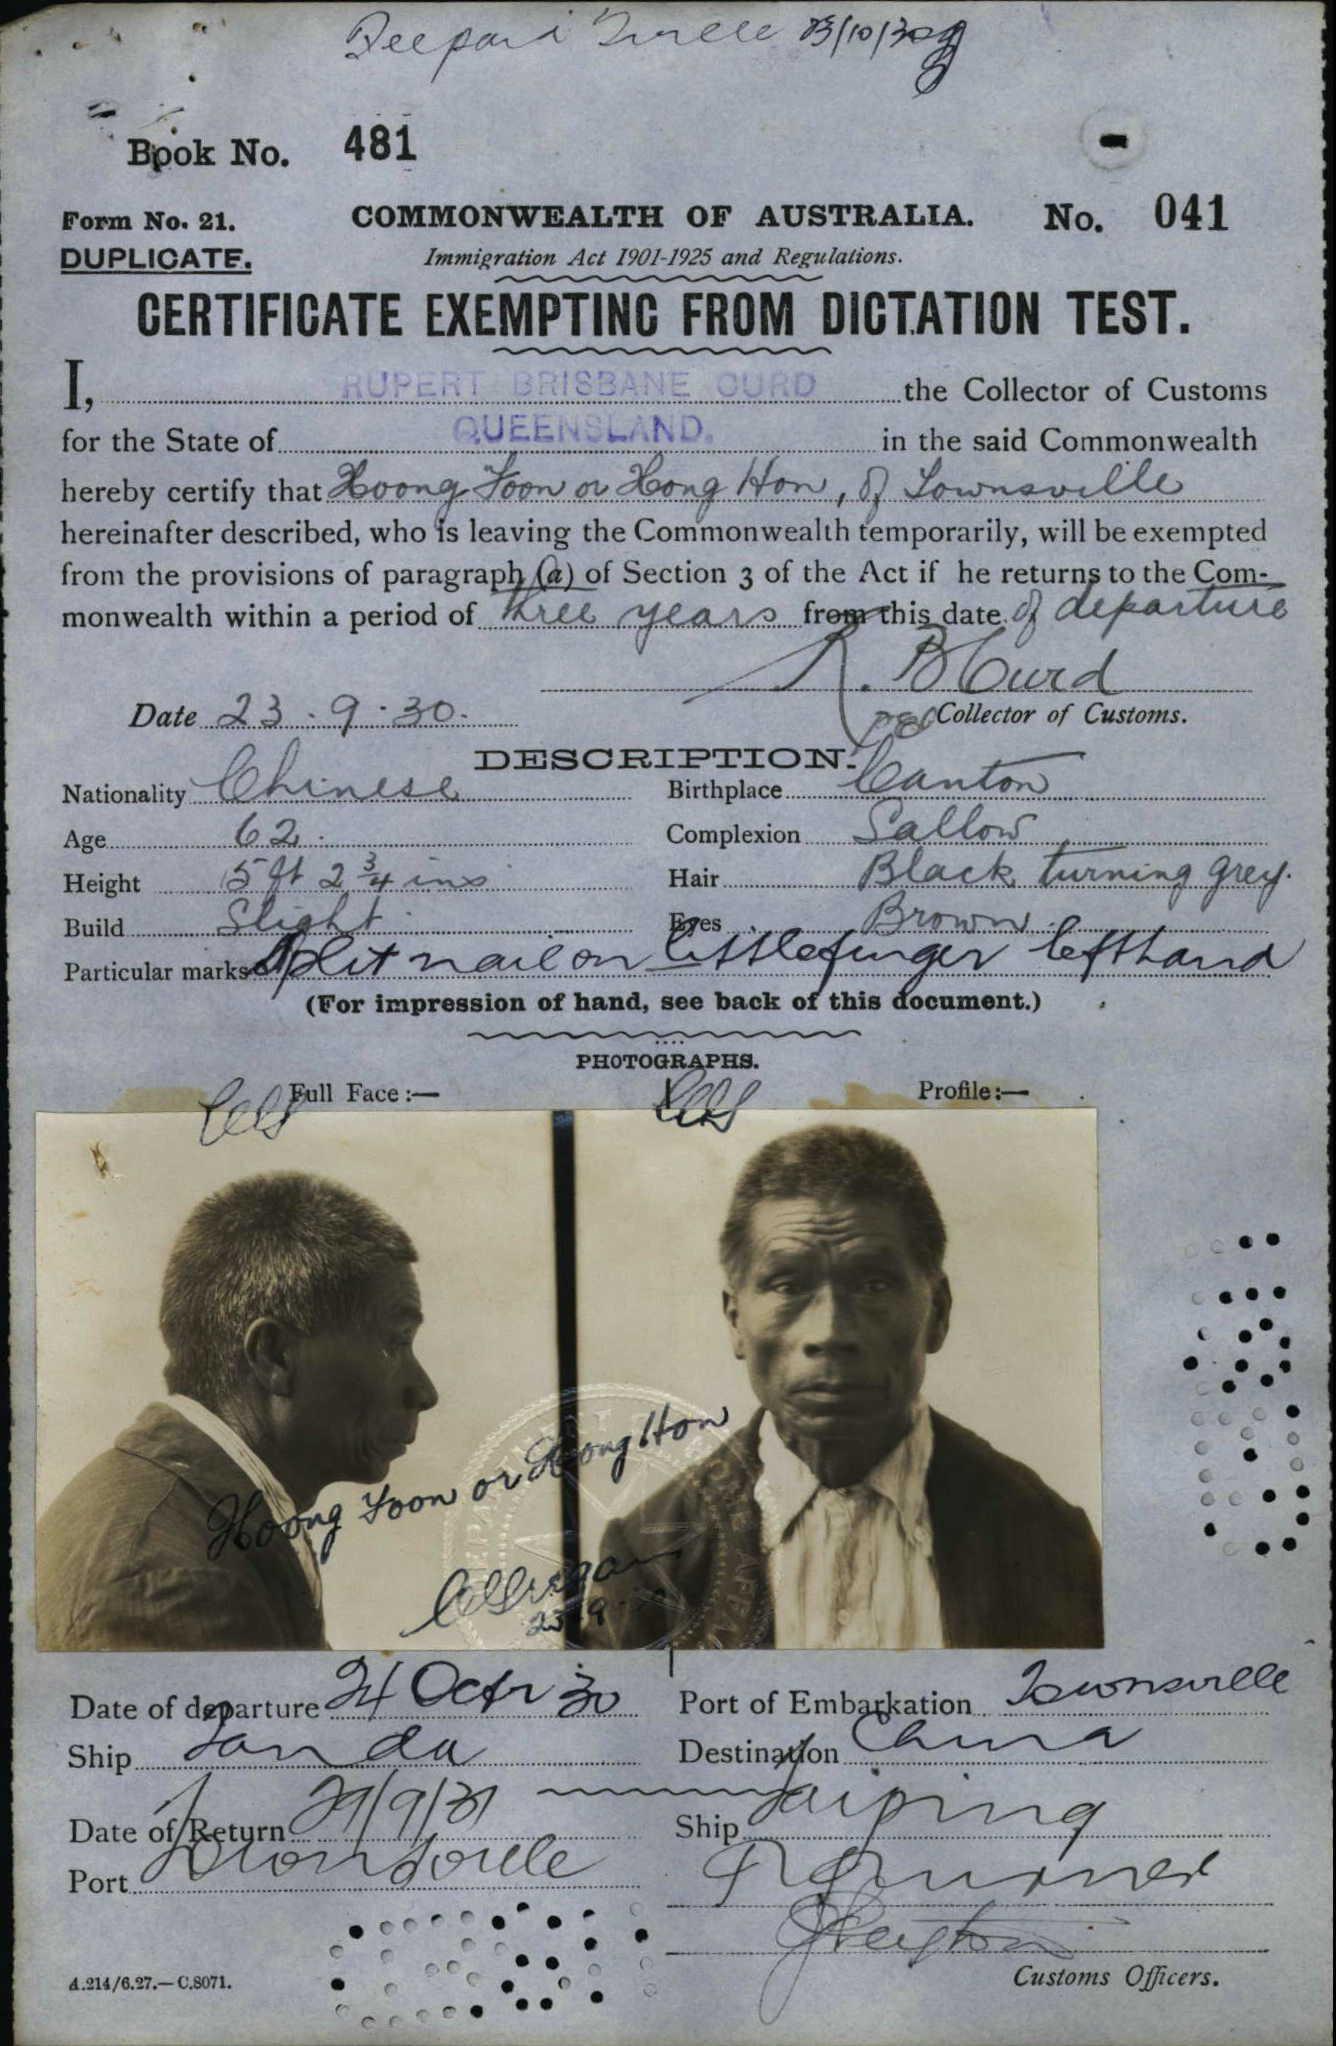 13/10/30
Book No. 481
Form No. 21. COMMONWEALTH OF AUSTRALIA. No. 041
DUPLICATE. Immigration Act 1901-1925 and Regulations.
CERTIFICATE EXEMPTING FROM DICTATION TEST.
I, RUPERT BRISBANE CURD the Collector of Customs
for the State of QUEENSLAND. in the said Commonwealth
hereby certify that Hoong Yoon or Hong Hon, of Townsville
hereinafter described, who is leaving the Commonwealth temporarily, will be exempted
from the provisions of paragraph (a) of Section 3 of the Act if he returns to the Com-
monwealth within a period of three years from this date of departure
R. B Curd
Date 23.9.30. Collector of Customs.
DESCRIPTION.
Nationality Chinese Birthplace Canton
Age 62. Complexion Sallow
Height 5 ft 2 3/4 ins Hair Black turning grey.
Build Slight. Eyes Brown.
Particular marks Split nail on little finger left hand
(For impression of hand, see back of this document.)
PHOTOGRAPHS.
Full Face:— Profile:—
Hoong Yoon or Hoong Hon
23.9.30
Date of departure 24 Octr 30 Port of Embarkation Townsville
Ship Tanda Destination China
Date of Return 29/9/31 Ship Taiping
Port Townsville
Customs Officers.
A.214/6.27.—C.8071.